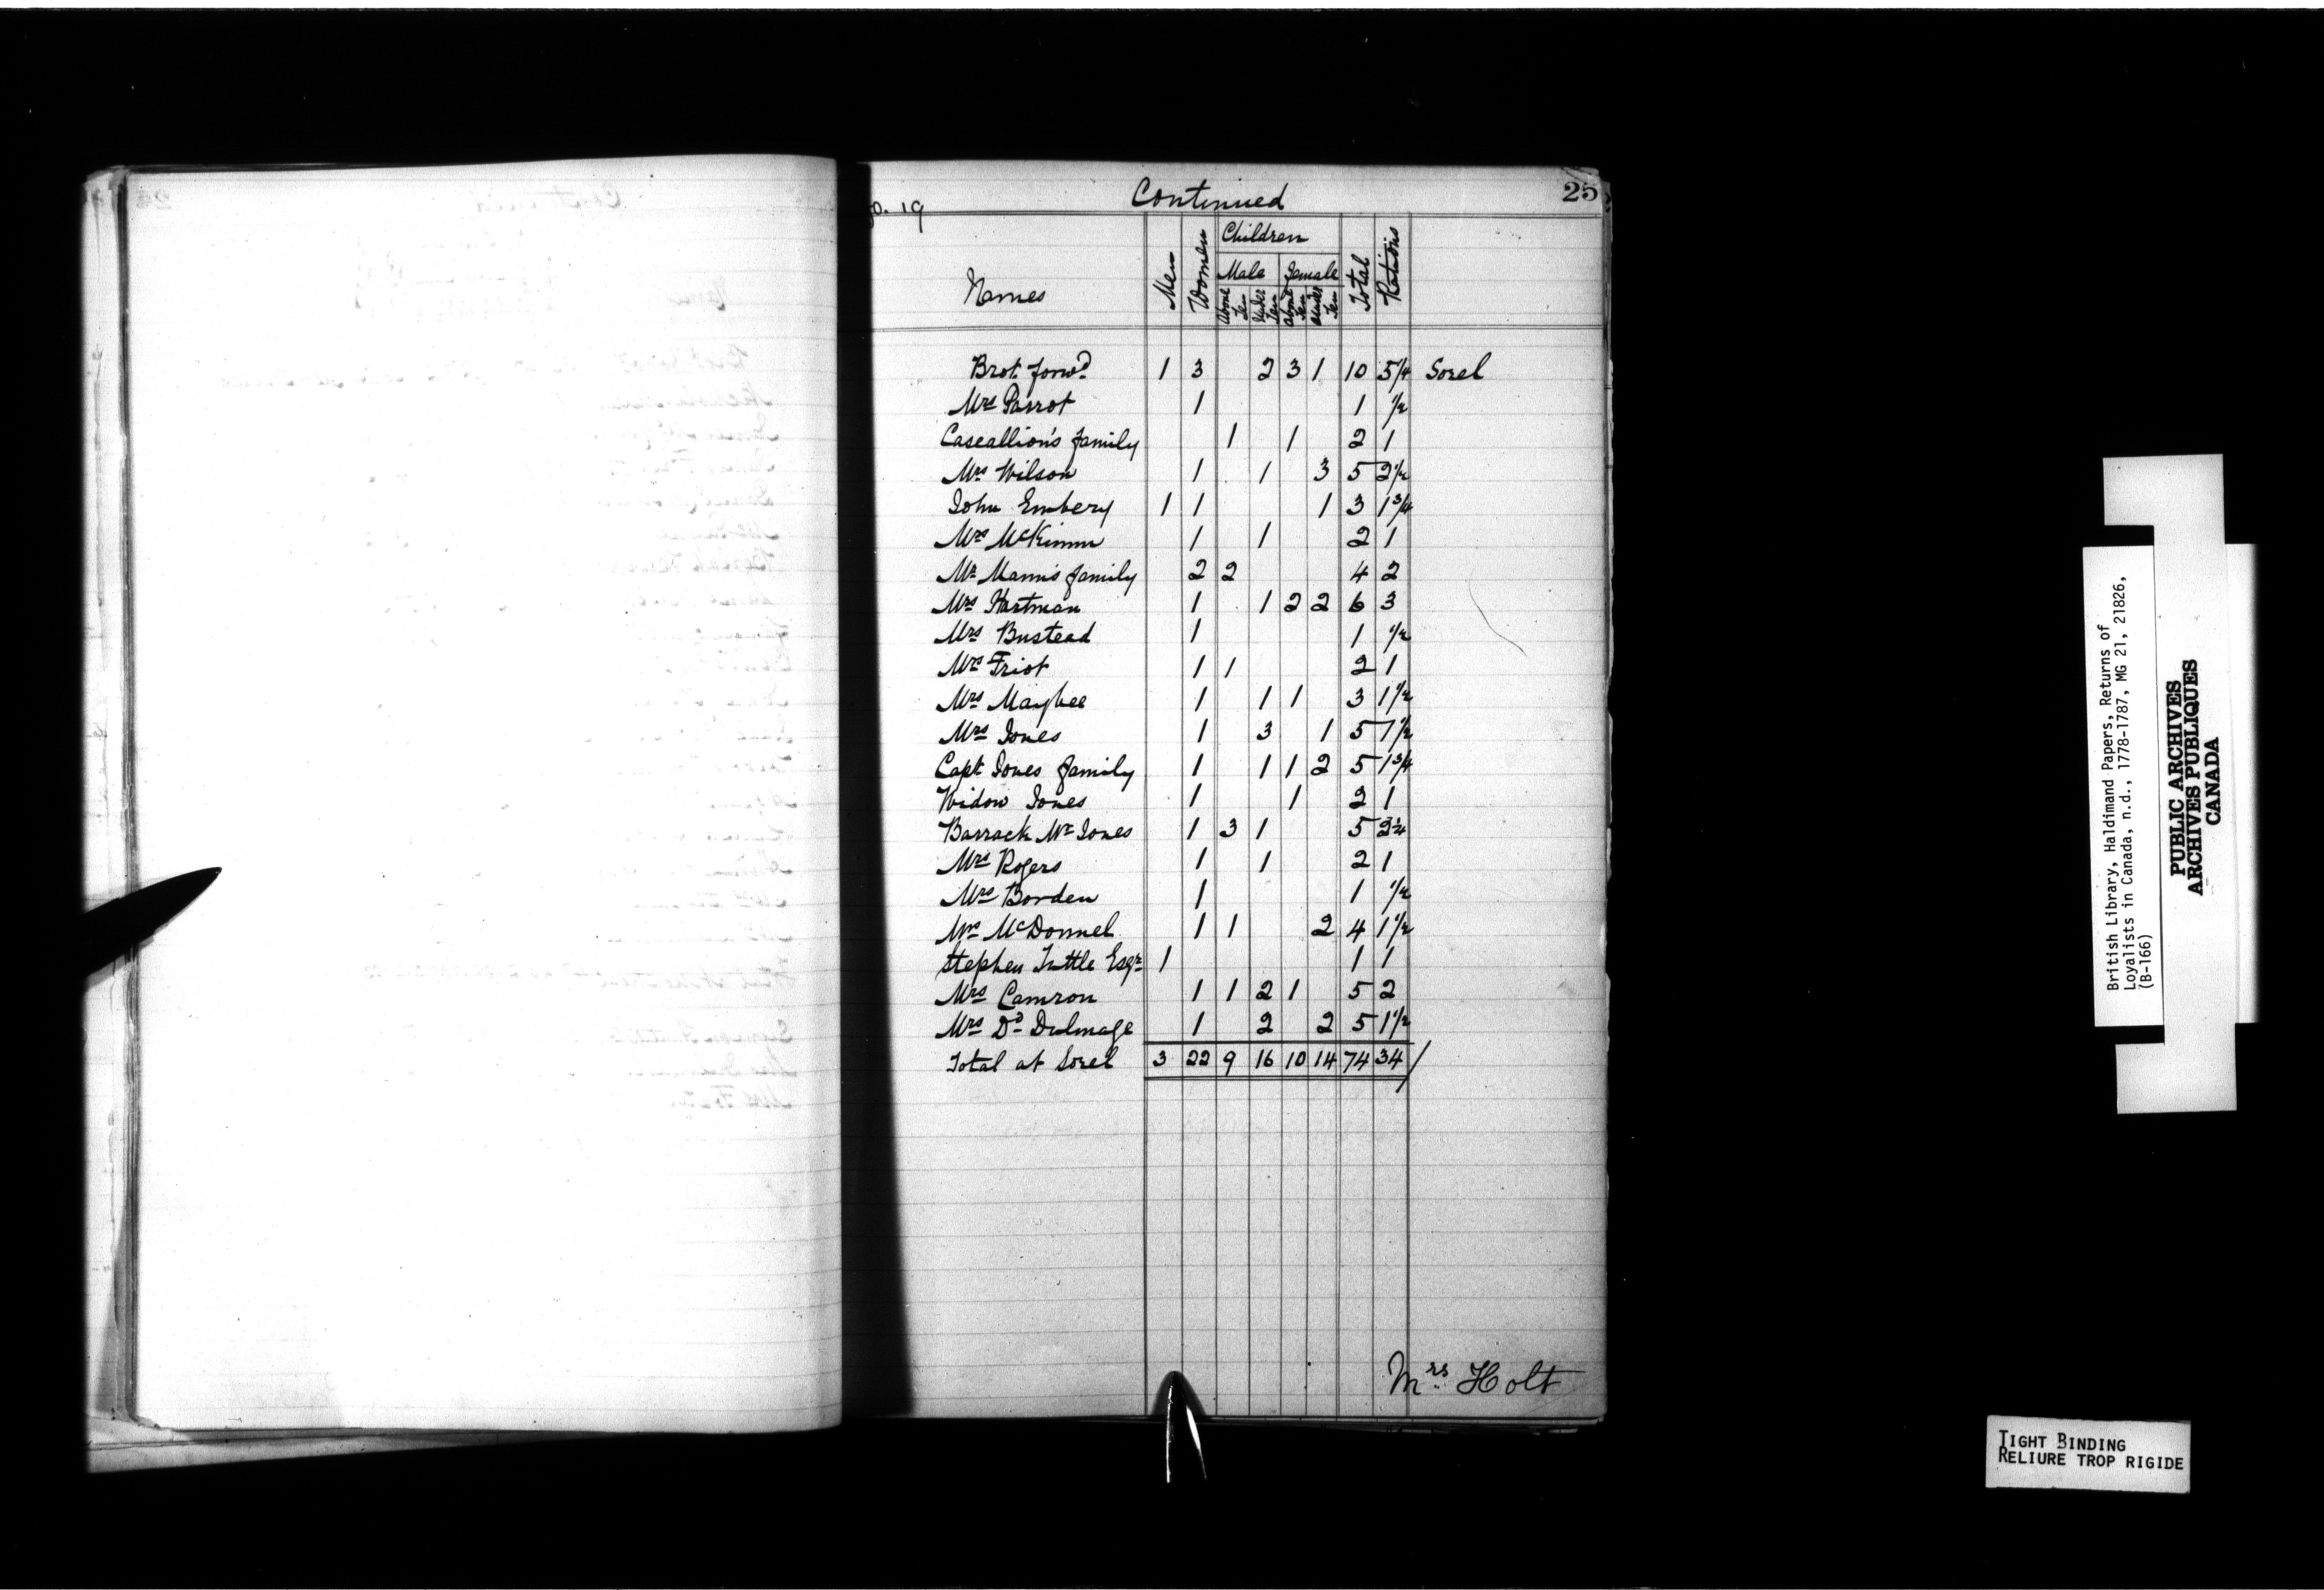 Continued
25
o. 19
Names
Men
Women
Children
Male
Female
above Ten
under Ten
above Ten
under Ten
Total
Rations
Brot. forwd 1 3 2 3 1 10 5/4 Sorel
Mrs Parrot 1 1 1/2
Caseallion's family 1 1 2 1
Mrs Wilson 1 1 3 5 2 1/2
John Embery 1 1 1 3 1 3/4
Mrs McKimm 1 1 2 1
Mr Mann's family 2 2 4 2
Mrs Hartman 1 1 2 2 6 3
Mrs Bustead 1 1 1/2
Mrs Friot 1 1 2 1
Mrs Maybee 1 1 1 3 1 1/2
Mrs Jones 1 3 1 5 1 1/2
Capt Jones family 1 1 1 2 5 1 3/4
Widow Jones 1 1 2 1
Barrack Mr Jones 1 3 1 5 2 1/4
Mrs Rogers 1 1 2 1
Mrs Borden 1 1 1/2
Mrs McDonnel 1 1 2 4 1 1/2
Stephen Tuttle Esqr 1 1 1
Mrs Camron 1 1 2 1 5 2
Mrs Dd Dulmage 1 2 2 5 1 1/2
Total at Sorel 3 22 9 16 10 14 74 34
Mrs Holt
British Library, Haldimand Papers, Returns of
Loyalists in Canada, n.d., 1778-1787, MG 21, 21826,
(B-166)
PUBLIC ARCHIVES
ARCHIVES PUBLIQUES
CANADA
TIGHT BINDING
RELIURE TROP RIGIDE